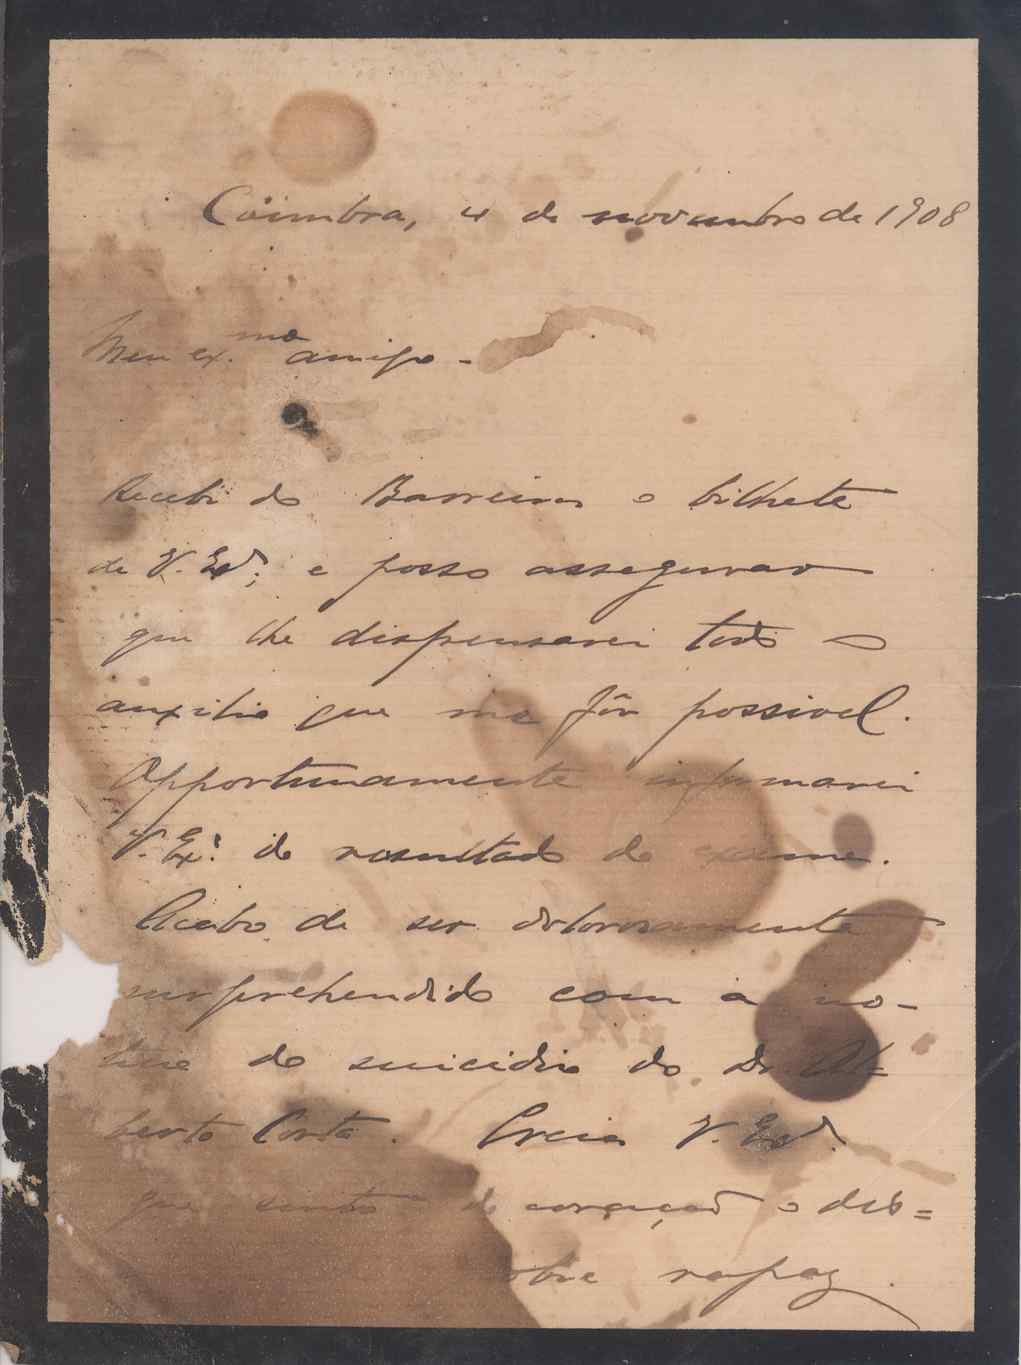 Coimbra, 4 de novembro de 1908
Meu ex.mo amigo -
Recebi do Barreiros o bilhete
de V. Exª; e posso assegurar
que lhe dispensarei todo o
auxilio que me fôr possivel.
Opportunamente informarei
V. Exª do resultado do exame.
Acabo de ser dolorosamente
surprehendido com a no-
ticia do suicidio do Dr. Al=
berto Costa. Creia V. Exª
que sinto de coração o des=
obre rapaz.